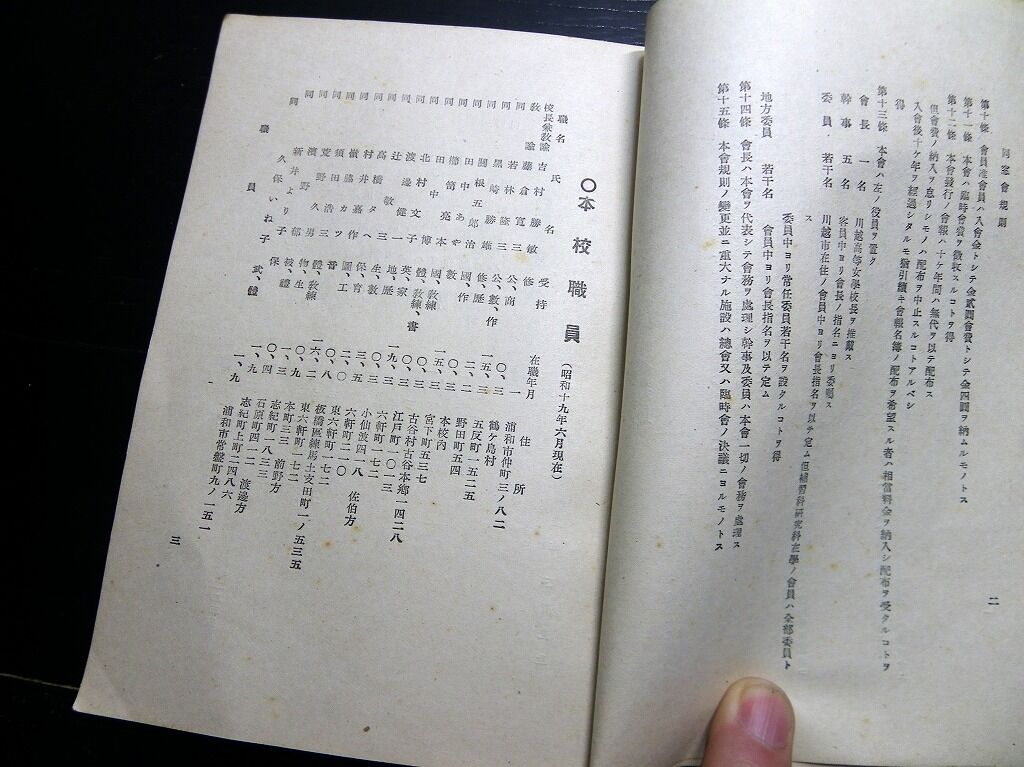 同窓會規則
第十條 會員准會員ハ入會金トシテ金貳圓會費トシテ金四圓ヲ納ムルモノトス
第十一條 本會ハ臨時會費ヲ徴收スルコトヲ得
第十二條 本會發行ノ會報ハ十ケ年間ハ無代ヲ以テ配布ス
但會費ノ納入ヲ怠リシモノハ配布ヲ中止スルコトアルベシ
入會後十ケ年ヲ經過シタルモ猶引續キ會報名簿ノ配布ヲ希望スル者ハ相當料金ヲ納入シ配布ヲ受クルコトヲ
得
第十三條 本會ハ左ノ役員ヲ置ク
會長 一名 川越高等女學校長ヲ推戴ス
幹事 五名 客員中ヨリ會長ノ指名ニヨリ委囑ス
委員 若干名 川越市在住ノ會員中ヨリ會長指名ヲ以テ定ム但補習科研究科在學ノ會員ハ全部委員ト
ス
委員中ヨリ常任委員若干名ヲ設クルコトヲ得
地方委員 若干名 會員中ヨリ會長指名ヲ以テ定ム
第十四條 會長ハ本會ヲ代表シテ會務ヲ處理シ幹事及委員ハ本會一切ノ會務ヲ處理ス
第十五條 本會規則ノ變更並ニ重大ナル施設ハ總會又ハ臨時會ノ決議ニヨルモノトス
二
〇本校職員(昭和十九年六月現在)
職名 氏名 受持 在職年月 住所
校長兼教諭 古村勝敏 修 〇、一 浦和市仲町三ノ八二
教諭 藤倉寛三 公、商 〇、三 鶴ケ島村
同 若林隆三 公、數、作 一五、三 五反町一五二五
同 黒崎勝 修、歷 二、二 野田町五四
同 關根五郎 國、作 〇、三 本校內
同 田中あや 數 宮下町五三七
同 國、教練 古谷村古谷本鄉一四二八
同 北村博 體、教練、書 江戸町一〇三
同 渡邊文子 英、家 六軒町一七二
同 辻健一 地、歷 小仙波四一八
同 高橋敏三 生、數 六軒町二一〇 佐伯方
同 村井タヘ 保、育 東六軒町一七二
同 圖、工 板橋區練馬土支田町一ノ五三五
同 須田カツ 音 東六軒町一七二
同 荒田浩二 體、教練 本町三三 前野方
同 濱野久男 物、生 志紀町一八三
同 新井より子 石原町四一二
同 久保いね子 志紀町上町二四八六 渡邊方
職員 武、體 一、九 浦和市常盤町九ノ一五一
三